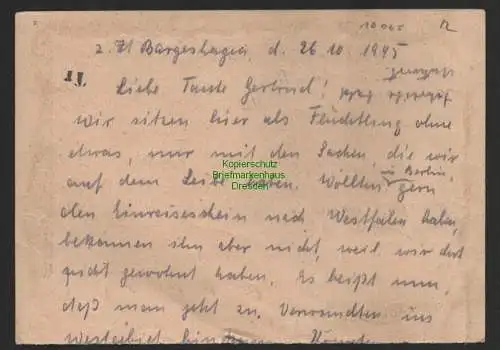 10 065
z. Zt Bargeshagen, d. 26 10. 1945
Liebe Tante Gertrud!
wir sitzen hier als Flüchtling ohne
etwas, nur mit den Sachen, die wir
auf dem Leibe haben. Wollten in Berlin gern
den Einreiseschein nach Westfalen haben,
bekommen ihn aber nicht, weil wir dort
nicht gewohnt haben. Es heißt nun,
daß man jetzt zu Verwandten ins
Kopierschutz
Briefmarkenhaus
Dresden